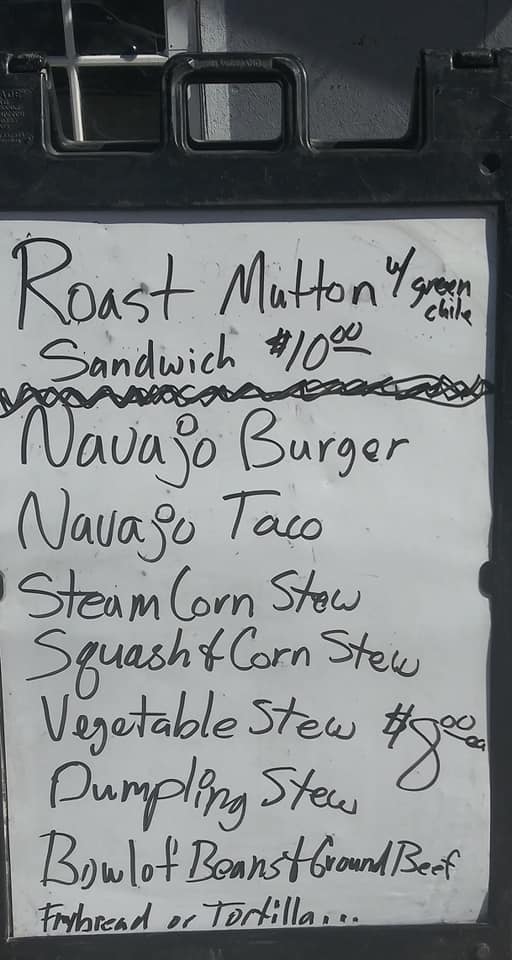 Roast Mutton w/ green chile
Sandwich $10.00
Navajo Burger
Navajo Taco
Steam Corn Stew
Squash & Corn Stew
Vegetable Stew $8.00 ea
Dumpling Stew
Bowl of Beans + Ground Beef
Frybread or Tortilla...